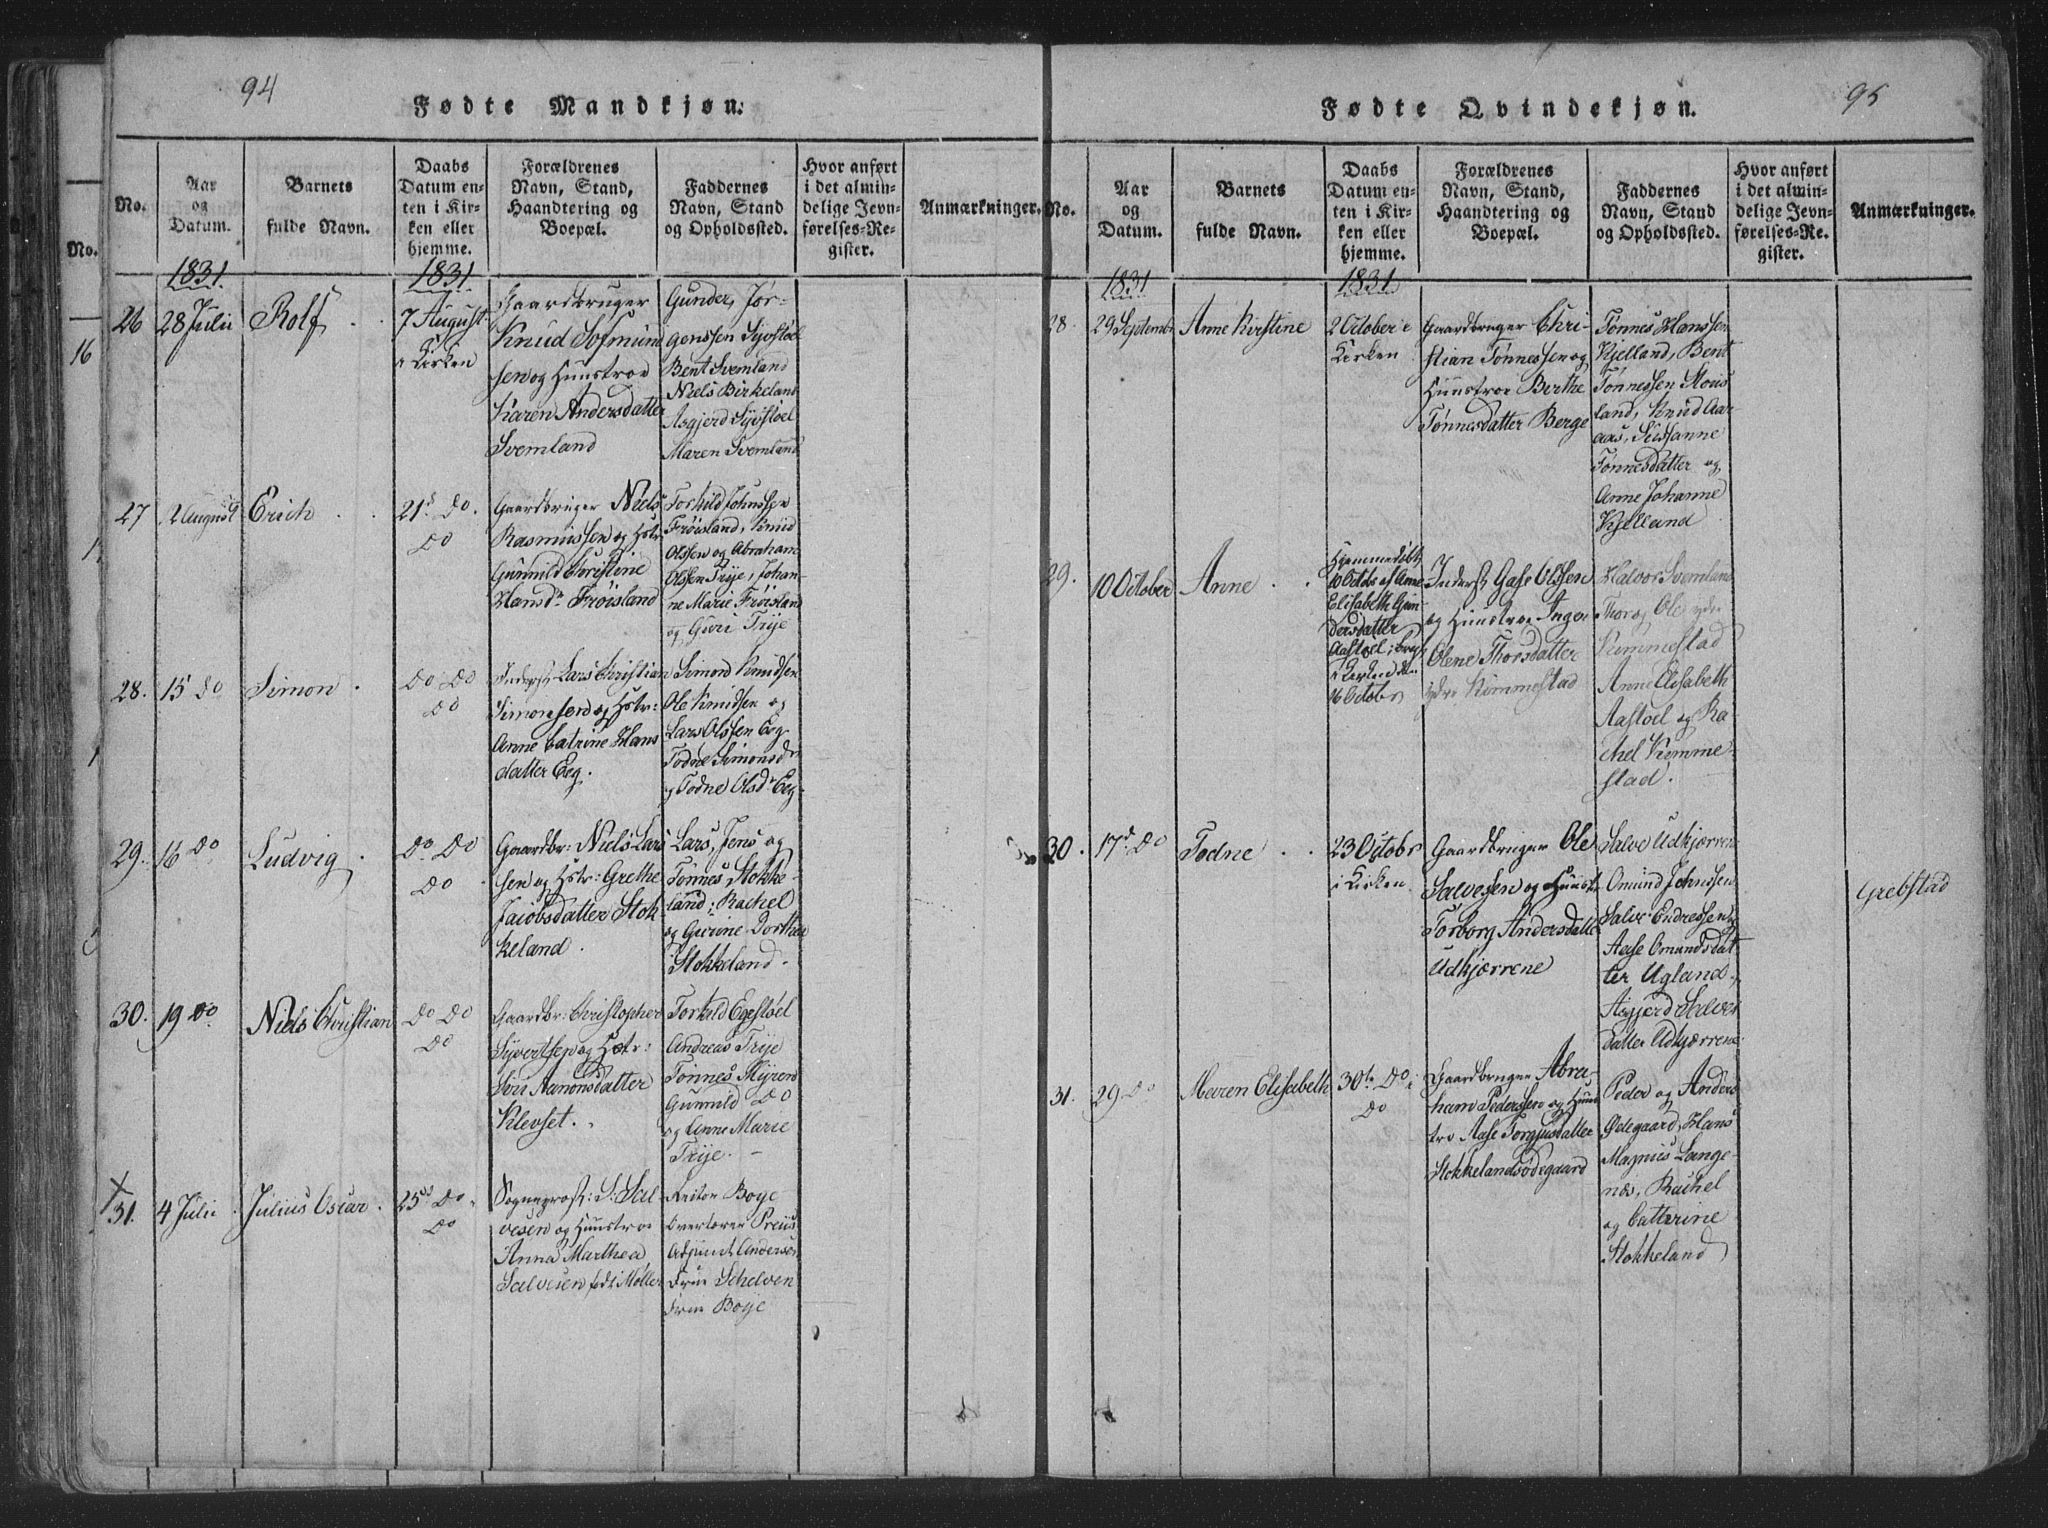 94
Fødte Mandkjøn.
No.
Aar
og
Datum.
Barnets
fulde Navn.
Daabs
Datum en-
ten i Kir-
ken eller
hjemme.
Forældrenes
Navn, Stand,
Haandtering og
Boepæl.
Faddernes
Navn, Stand
og Opholdssted.
Hvor anført
i det almin-
delige Jevn-
førelses-Re-
gister.
Anmærkninger.
1831.
1831.
26
28 Julii
Rolf
7 August
i Kirken
Gaardbruger
Knud Sofmund
sen og Hunstroe
Karen Andersdatter
Svemland
Gunder, Jør-
genssen Syvstøl
Bent Svemland
Niels Birkeland
Asgjerd Syvstøel
Maren Svemland
27
2 August
Erich
21d do.
do
Gaardbruger Niels
Rasmussen og Hstr
Gunnild Christine
Hansdr Frøisland
Torkild Johnssen
Frøisland, Knud
Olssen og Abraham
Olssen Trye, Johan-
ne Marie Frøisland
og Guri Trye
28.
15 do
Simon
do do
do
Inderst Lars Christian
Simonsen og Hstr:
Anne Catrine Hans
datter Eeg.
Simond Knudsen
Ole Knudsen og
Lars Olssen Eeg
Todne Simonsdr
og Todne Olsdr Eeg-
29.
16 do
Ludvig
do do
do
Gaardbr: Niels Lars
sen og Hstr: Grethe
Jacobsdatter Stok
keland.
Lars, Jens og
Tønnes, Stokke-
land; Rachel
og Gurine Dorthea
Stokkeland-
30.
19 do.
Niels Christian
do do
do
Gaardbr: Christopher
Syvertsen og Hstr:
Siri Aanonsdatter
Klevset.
Torkild Egestøel
Andreas Trye
Tønnes Myren
Gunnild do
og Anne Marie
Trye.
31.
4 Julii
Julius Oscar.
25d do.
do
Sogneprest: S: Sal-
vesen og Hunstroe
Anna Marthea
Salvesen født Møller
Boye
Overlærer Preus
Adjunct Andersen
Frue Schelven
Frue Boye
95
Fødte Qvindekjøn.
No.
Aar
og
Datum.
Barnets
fulde Navn.
Daabs
Datum en-
ten i Kir-
ken eller
hjemme.
Forældrenes
Navn, Stand,
Haandtering og
Boepæl.
Faddernes
Navn, Stand
og Opholdssted.
Hvor anført
i det almin-
delige Jevn-
førelses-Re-
gister.
Anmærkninger.
1831
1831
28.
29 Septembr
Anne Kirstine
2 October i
Kirken
Gaardbruger Chri-
stian Tønnessen og
Hunstroe Berthe
Tønnesdatter Berge
Tønnes Hanssen
Kjelland, Bent
Tønnessen
land, Knud Aar-
aas, Sussanne
Tønnesdatter og
Anne Johanne
Kjelland
29.
10 October
Anne
Hjemmedøbt
10 Octobr af Anne
Elisabeth Gun-
dersdatter
Aastøel;
i Kirken den
16 Octobr
Inderst Olssen
og Hunstroe Inger
Olene Thorsdatter
ydre Rømmestad
Halvor Svemland
Thor og Ole ydre
Rømmestad
Anne Elisabeth
Aastøel og Ra-
chel Rømme-
stad.
30.
17d do
Todne
23 Octobr
i Kirken
Gaardbruger Ole
Salvesen og Hunst
Torborg Andersdatter
Udkjærrene
Salve Udkjærren
Omund Johnssen
Salve Endressen
Aase Omundsdat
ter Ugland,
Asgjerd Salves
datter Udkjærrene
Grebstad
31.
29 do
Maren Elisabeth
30te do i
do
Gaardbruger Abra-
ham Pederssen og Huns
tro Aase Torgjusdatter
Stokkelandsødegaard
Peder og Anders
Ødegaard, Hans
Magnus Lange-
næs, Rachel
og Catterine
Stokkeland
No.
16